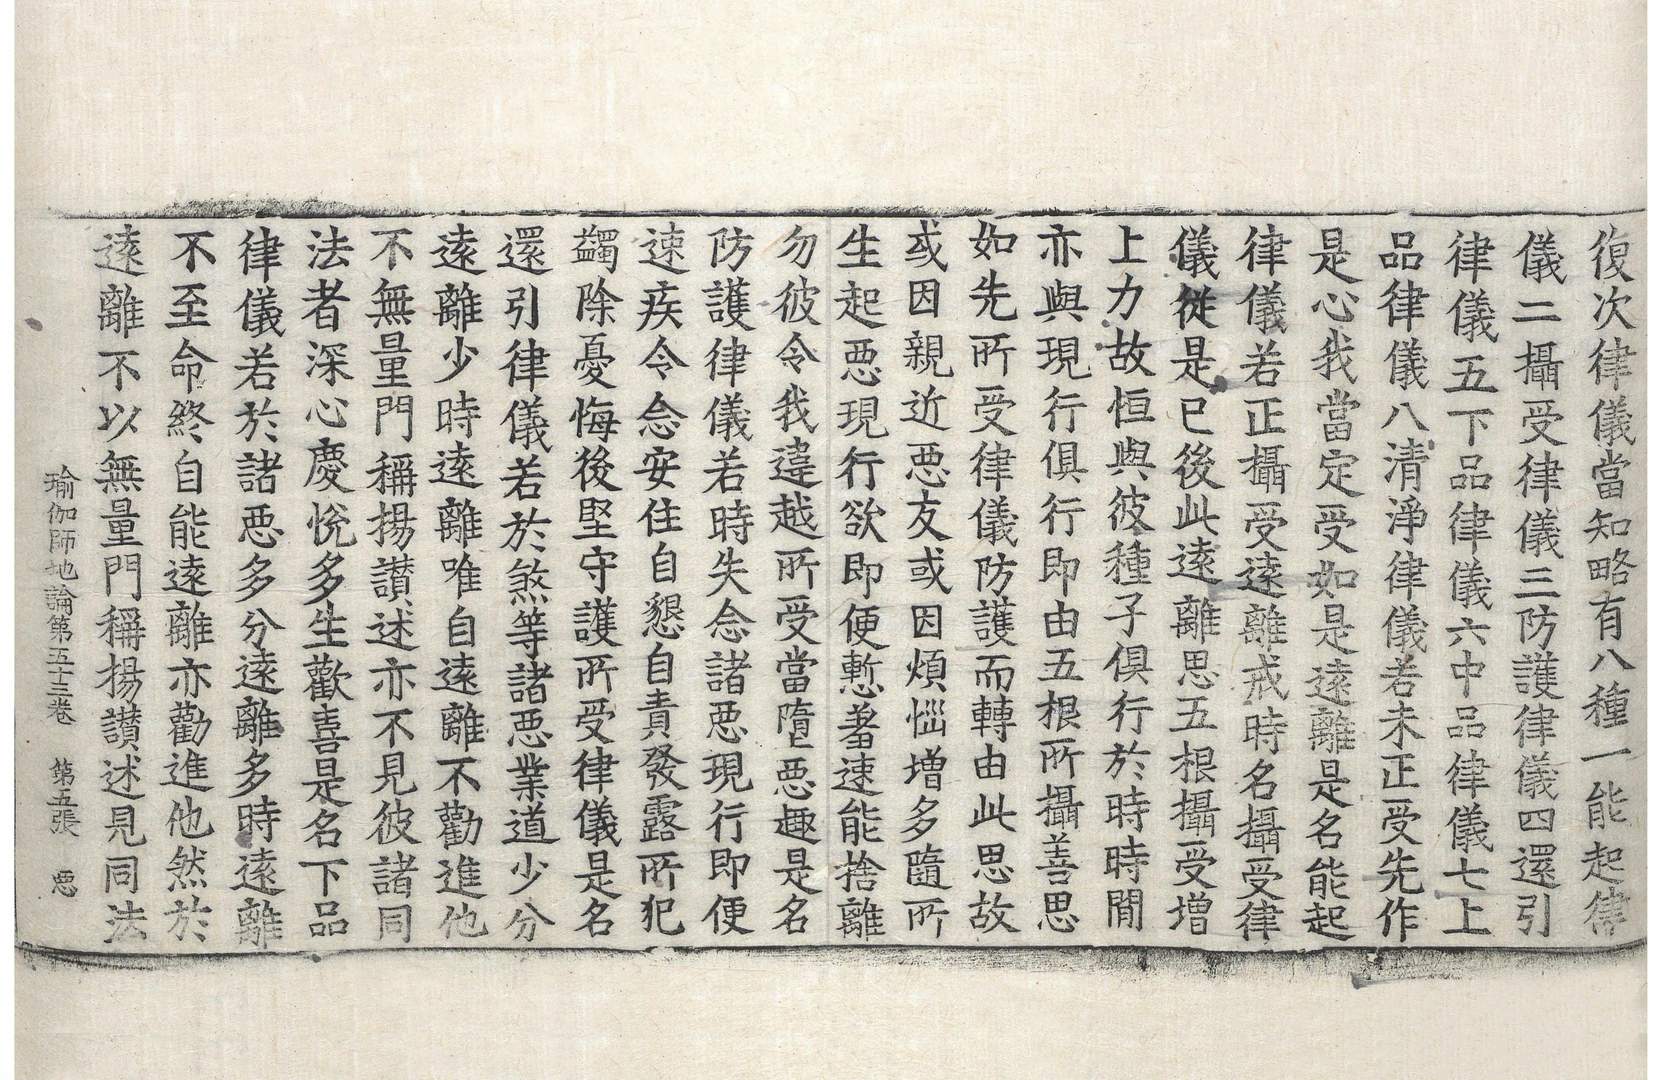 復次律儀當知略有八種一能起律
儀二攝受律儀三防護律儀四還引
律儀五下品律儀六中品律儀七上
品律儀八清淨律儀若未正受先作
是心我當定受如是遠離是名能起
律儀若正攝受遠離戒時名攝受律
儀從是已後此遠離思五根攝受增
上力故恒與彼種子俱行於時時間
亦與現行俱行即由五根所攝善思
如先所受律儀防護而轉由此思故
或因親近惡友或因煩惱增多隨所
生起惡現行欲即便慙羞速能捨離
勿彼令我違越所受當墮惡趣是名
防護律儀若時失念諸惡現行即便
速疾令念安住自懇自責發露所犯
蠲除憂悔後堅守護所受律儀是名
還引律儀若於煞等諸惡業道少分
遠離少時遠離唯自遠離不勸進他
不無量門稱揚讃述亦不見彼諸同
法者深心慶悅多生歡喜是名下品
律儀若於諸惡多分遠離多時遠離
不至命終自能遠離亦勸進他然於
遠離不以無量門稱揚讃述見同法
瑜伽師地論第五十三卷 第五張 惡